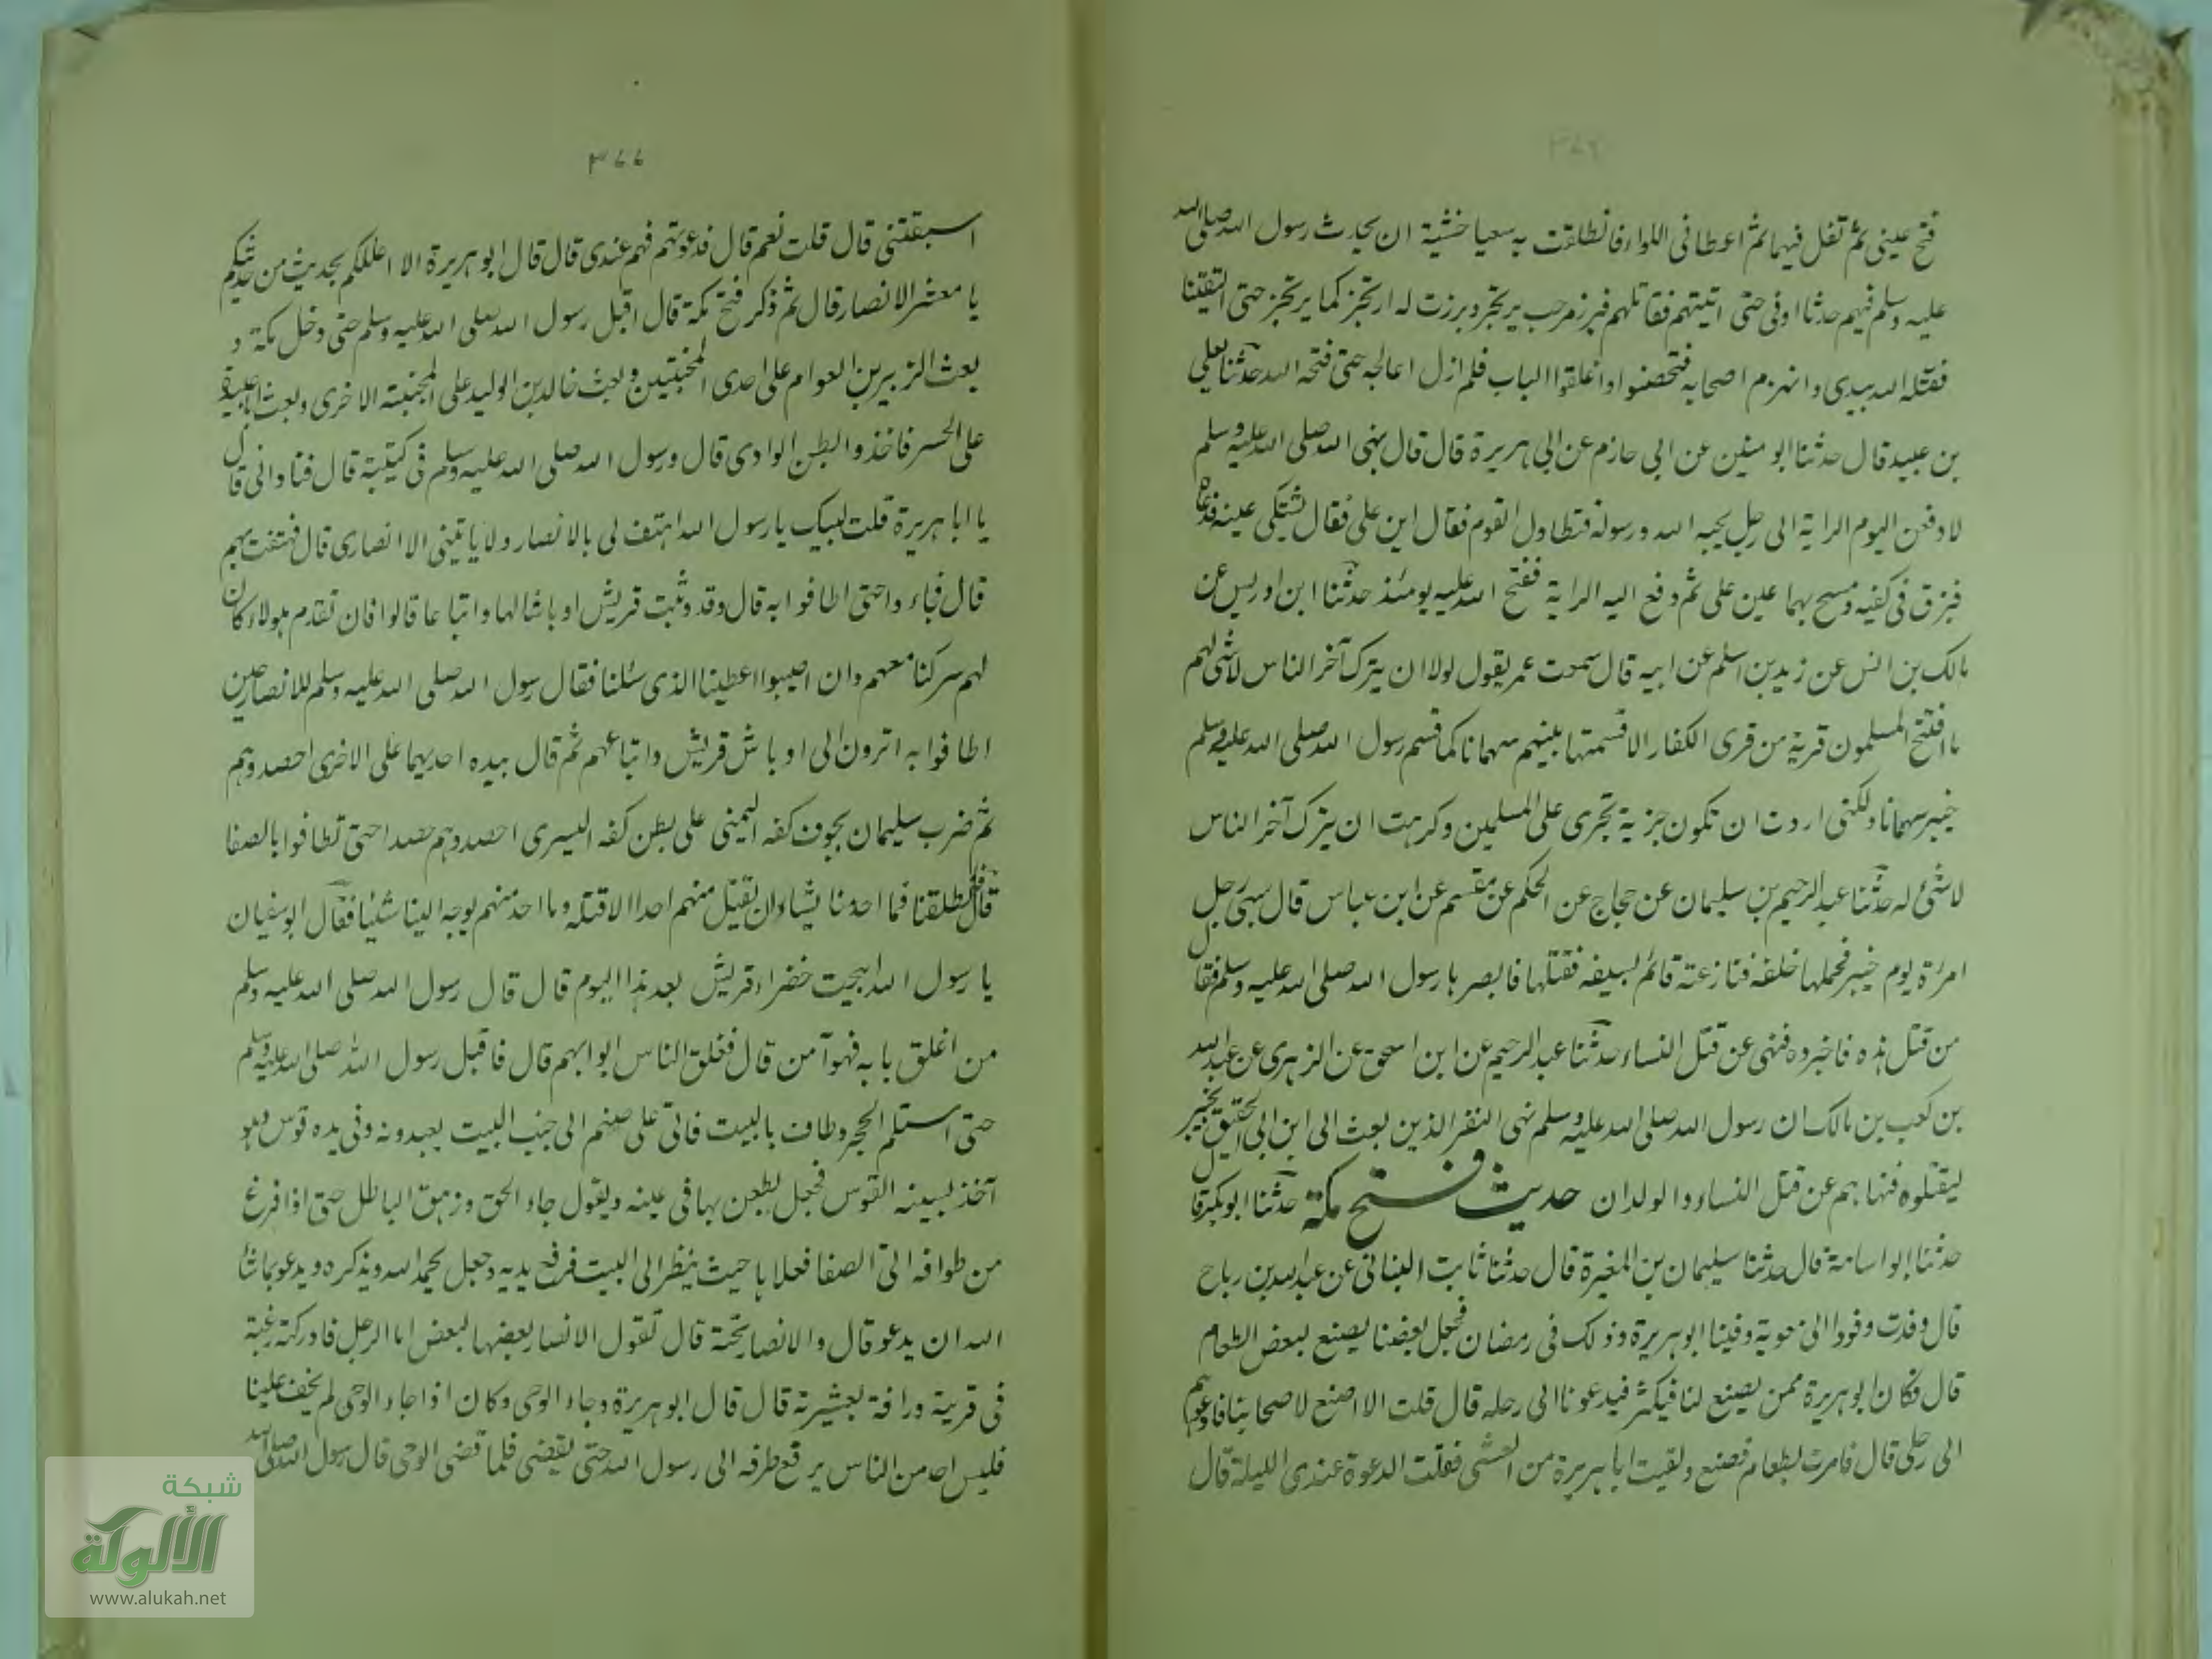 فتح عينى ثم تفل فيهما ثم اعطانى اللواء فانطلقت به سعيا خشية ان يحدث رسول الله صلى الله
عليه وسلم فيهم حدثا او فى حتى اتيتهم فقاتلهم فبرز مرحب يرتجز وبرزت له ارتجز كما يرتجز حتى التقينا
فقتله الله بيدى وانهزم اصحابه فتحصنوا واغلقوا الباب فلم ازل اعالجه حتى فتحه الله حدثنا يعلى
بن عبيد قال حدثنا ابو منين عن ابى حازم عن ابى هريرة قال قال نبى الله صلى الله عليه وسلم
لادفعن اليوم الراية الى رجل يحبه الله ورسوله فتطاول القوم فقال اين على فقال يشتكى عينه فدعاه
فبزق فى كفيه ومسح بهما عين على ثم دفع اليه الراية ففتح الله عليه يومئذ حدثنا ابن ادريس عن
مالك بن انس عن زيد بن اسلم عن ابيه قال سمعت عمر يقول لولا ان يترك آخر الناس لا شئ لهم
ما افتتح المسلمون قرية من قرى الكفار الا قسمتها بينهم سهمانا كما قسم رسول الله صلى الله عليه وسلم
خيبر سهمانا ولكنى اردت ان تكون جزية تجرى على المسلمين وكرهت ان يترك آخر الناس
لا شئ له حدثنا عبد الرحيم بن سليمان عن حجاج عن الحكم عن مقسم عن ابن عباس قال سبى رجل
امرئة يوم خيبر فحملها خلفه فنازعته قائم سيفه فقتلها فابصر بها رسول الله صلى الله عليه وسلم فقال
من قتل هذه فاخبروه فنهى عن قتل النساء حدثنا عبد الرحيم عن ابن اسحق عن الزهرى عن عبد الله
بن كعب بن مالك ان رسول الله صلى الله عليه وسلم نهى النفر الذين بعث الى ابن ابى الحقيق بخيبر
ليقتلوه فنهاهم عن قتل النساء والولدان حديث فتح مكة حدثنا ابو بكر قال
حدثنا ابو اسامة قال حدثنا سليمان بن المغيرة قال حدثنا ثابت البنانى عن عبد الله بن رباح
قال وفدت وفودا الى معوية وفينا ابو هريرة وذلك فى رمضان فجعل بعضنا يصنع لبعض الطعام
قال فكان ابو هريرة ممن يصنع لنا فيكثر فيدعونا الى رحله قال قلت الا اصنع لاصحابنا فادعوهم
الى رحلى قال فامرت بطعام فصنع ولقيت ابا هريرة من العشى فقلت الدعوة عندى الليلة قال
٣٧٧
اسبقتنى قال قلت نعم قال فدعوتهم فهم عندى قال قال ابو هريرة الا اعللكم بحديث من حديثكم
يا معشر الانصار قال ثم ذكر فتح مكة قال اقبل رسول الله صلى الله عليه وسلم حتى دخل مكة و
بعث الزبير بن العوام على احدى المجنبتين وبعث خالد بن الوليد على المجنبة الاخرى وبعث ابا عبيدة
على الحسر فاخذوا بطن الوادى قال ورسول الله صلى الله عليه وسلم فى كتيبة قال فنادانى قال
يا ابا هريرة قلت لبيك يا رسول الله اهتف لى بالانصار ولا ياتينى الا انصارى قال فهتفت بهم
قال فجاءوا حتى اطافوا به قال وقد وبشت قريش اوباشا لها واتباعا قالوا فان تقدم هولاء كان
لهم سركنا معهم وان اصيبوا اعطينا الذى سئلنا فقال رسول الله صلى الله عليه وسلم للانصار حين
اطافوا به اترون الى اوباش قريش واتباعهم ثم قال بيده احديهما على الاخرى احصدوهم
ثم ضرب سليمان بجوف كفه اليمنى على بطن كفه اليسرى احصدوهم حصدا حتى تطافوا بالصفا
قال فانطلقنا فما احد منا يشاء ان يقتل منهم احدا الا قتله وما احد منهم يوجه الينا شيئا فقال ابو سفيان
يا رسول الله ابيحت خضراء قريش بعد هذا اليوم قال قال رسول الله صلى الله عليه وسلم
من اغلق بابه فهو آمن قال فغلق الناس ابوابهم قال فاقبل رسول الله صلى الله عليه وسلم
حتى استلم الحجر وطاف بالبيت فاتى على صنم الى جنب البيت يعبدونه وفى يده قوس وهو
آخذ بسية القوس فجعل يطعن بها فى عينه ويقول جاء الحق وزهق الباطل حتى اذا فرغ
من طوافه اتى الصفا فعلاها حيث ينظر الى البيت فرفع يديه وجعل يحمد الله ويذكره ويدعو بما شاء
الله ان يدعو قال والانصار تحته قال تقول الانصار بعضها لبعض اما الرجل فادركته رغبة
فى قرية ورافة بعشيرته قال قال ابو هريرة وجاء الوحى وكان اذا جاء الوحى لم يخف علينا
فليس احد من الناس يرفع طرفه الى رسول الله حتى يقضى فلما قضى الوحى قال رسول الله صلى الله
شبكة
الألوكة
www.alukah.net